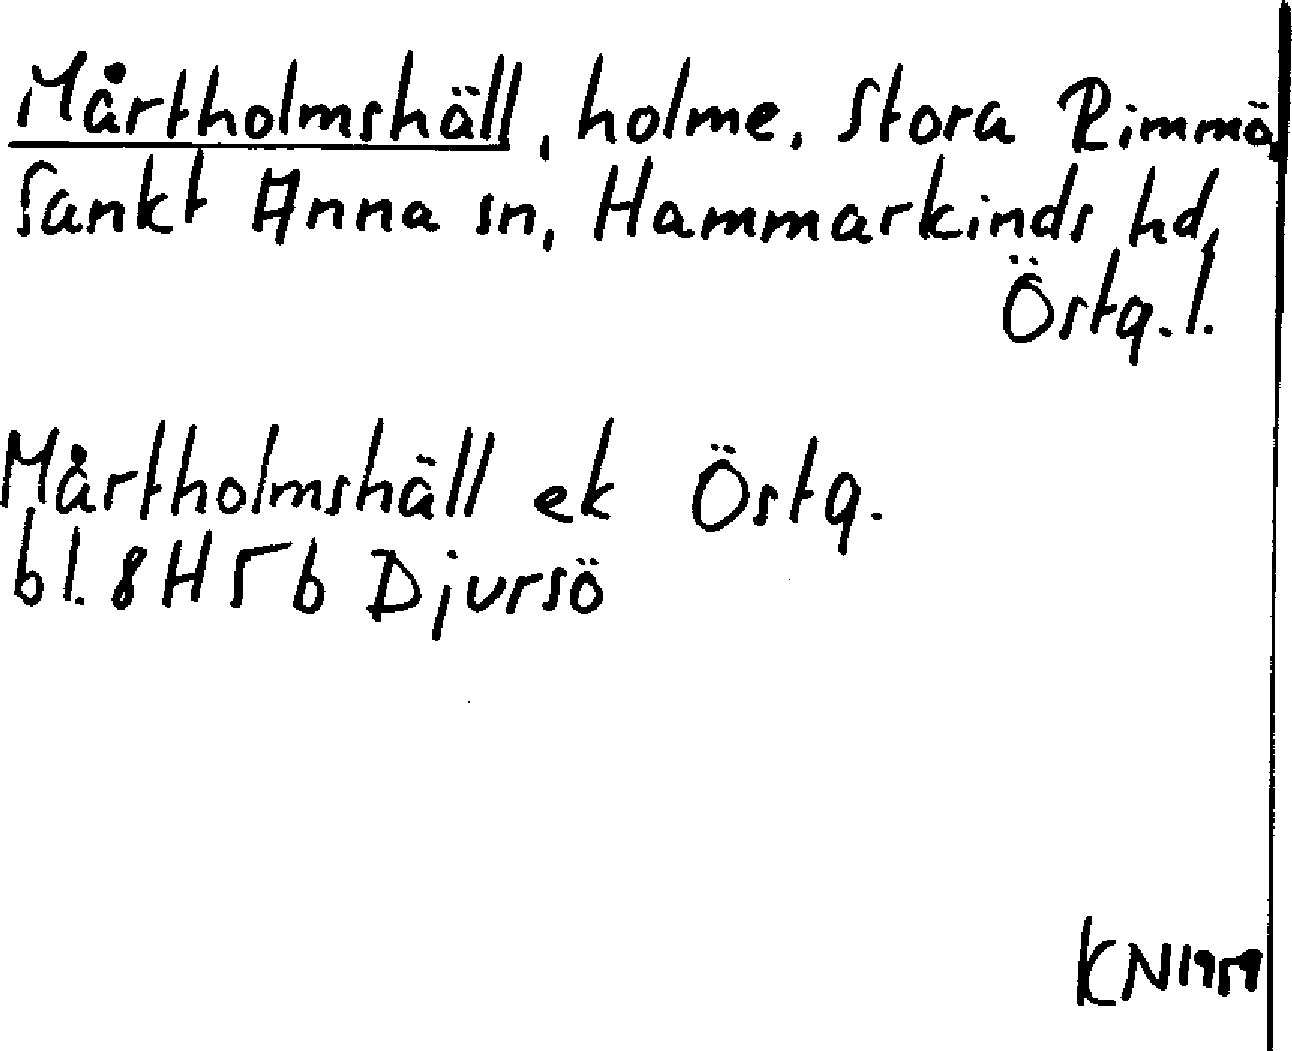 Mårtholmshäll, holme, Stora Rimmö,
Sankt Anna sn, Hammarkinds hd,
Östg. l.
Mårtholmshäll ek Östg.
bl. 8H5b Djursö
KN 1959